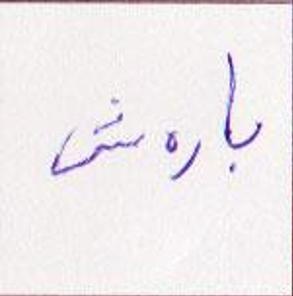 باره ش